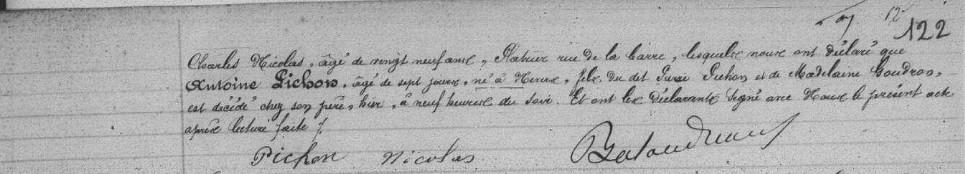 122
Charles Nicolas, âgé de vingt neuf ans, Platrier rue de la barre, lesquels nous ont déclaré que
Antoine Pichon, âgé de sept jours, né à Nevers, fils du dit Pichon et de Madelaine Goudron,
est décédé chez son père, hier, à neuf heures du soir. Et ont les déclarants signé avec Nous le présent acte
après lecture faite ./.
Pichon Nicolas